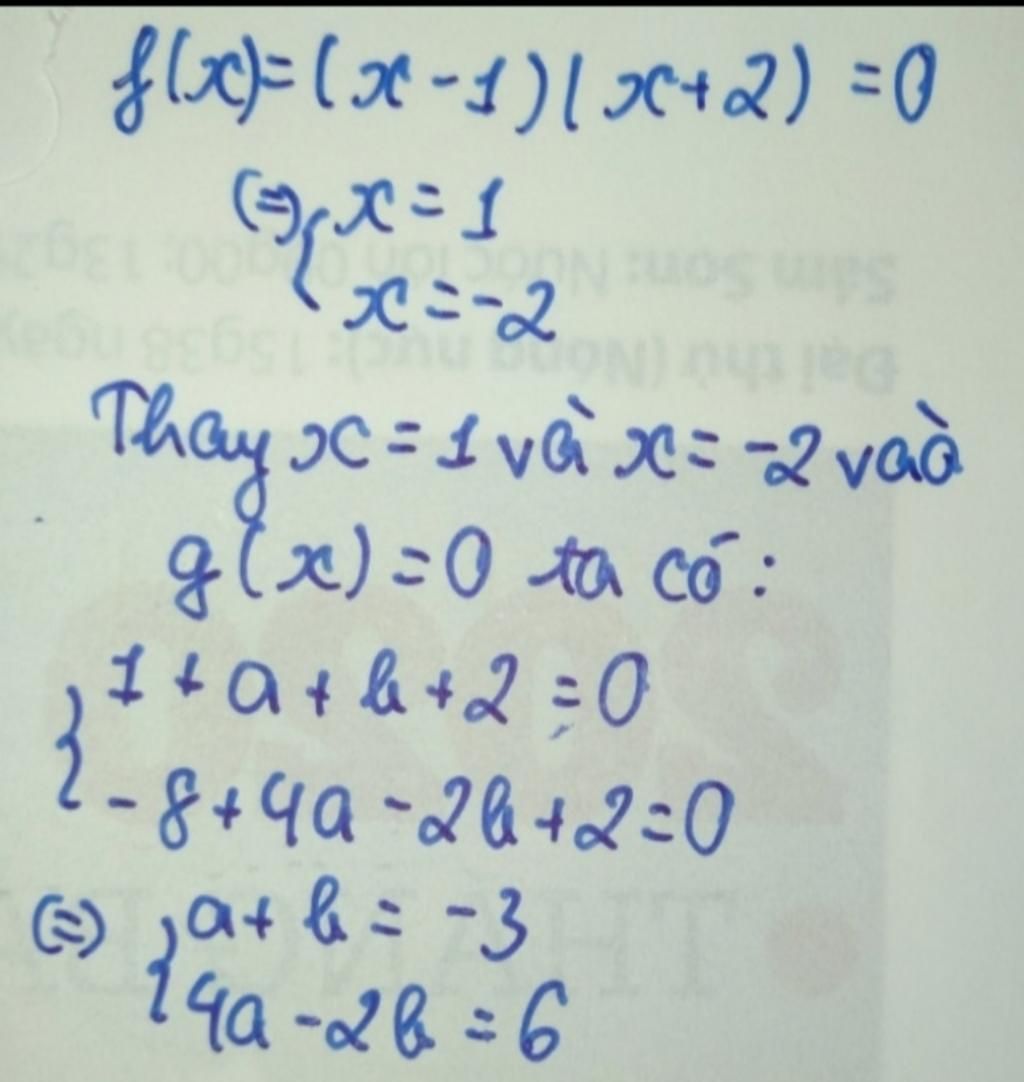 f(x)=(x-1)(x+2)=0
(=) { x=1
x=-2
Thay x=1 và x=-2 vào
g(x)=0 ta có:
{ 1+a+b+2=0
-8+4a-2b+2=0
(=) { a+b=-3
4a-2b=6